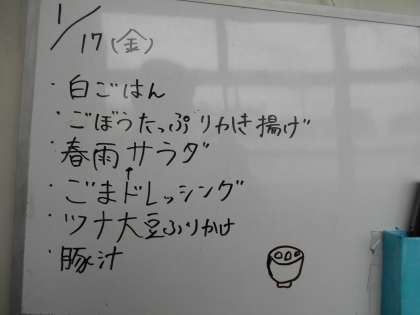 1/17(金)
・白ごはん
・ごぼうたっぷりかき揚げ
・春雨サラダ
↑
・ごまドレッシング
・ツナ大豆ふりかけ
・豚汁